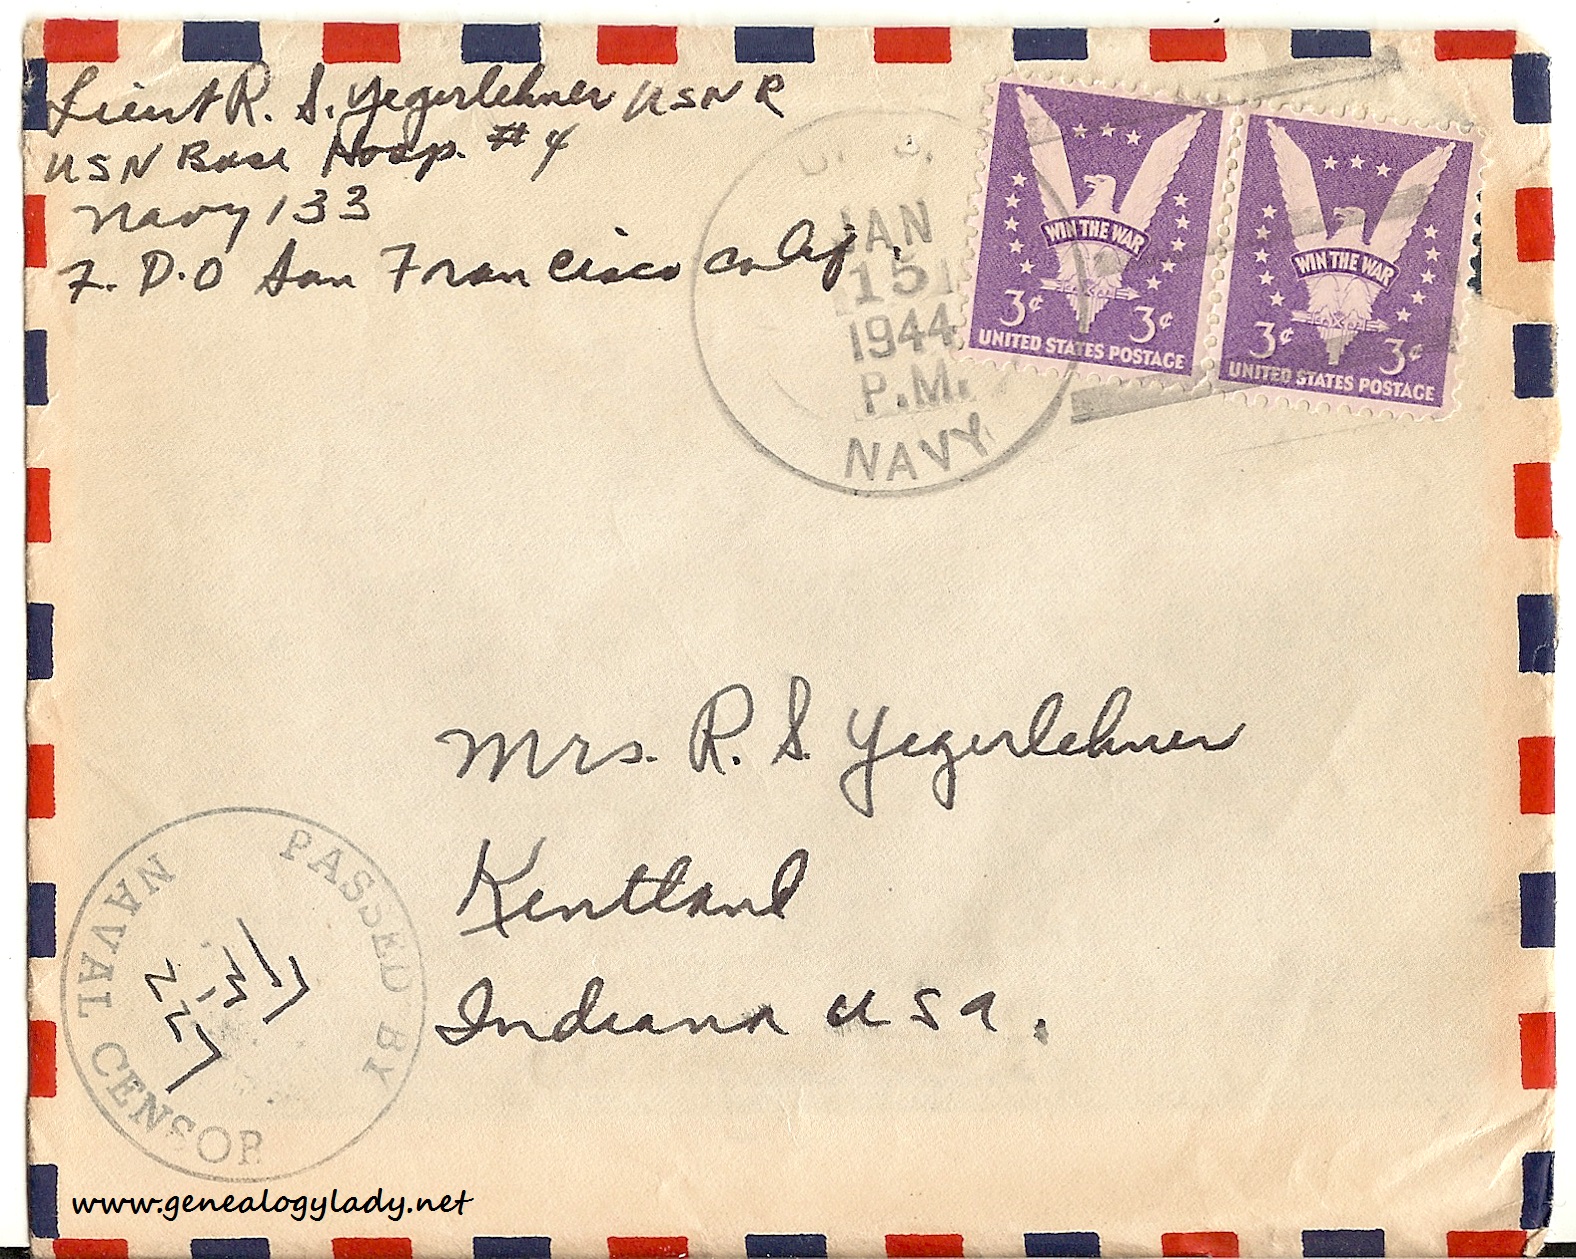 Lieut R. S. Yegerlehner USNR
USN Base Hosp. #4
Navy 133
F. P.O San Francisco Calif.
U. S.
JAN
15
1944
P.M.
NAVY
WIN THE WAR
3¢ 3¢
UNITED STATES POSTAGE
WIN THE WAR
3¢ 3¢
UNITED STATES POSTAGE
Mrs. R. S. Yegerlehner
Kentland
Indiana USA.
PASSED BY
NAVAL CENSOR
www.genealogylady.net